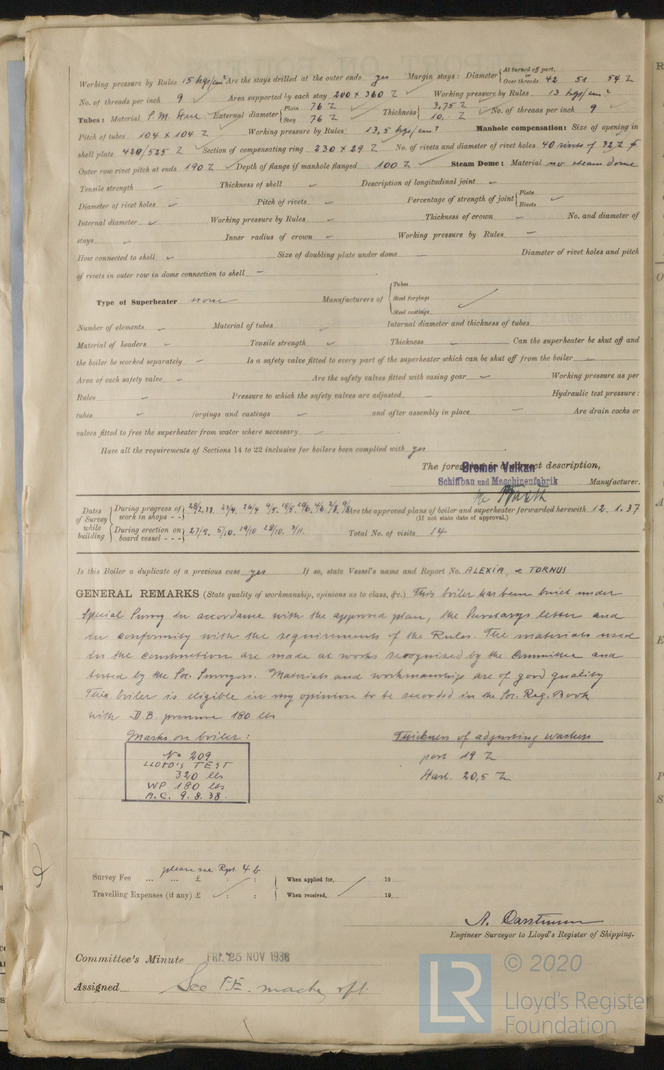 Working pressure by Rules 15 kgs/cm² Are the stays drilled at the outer ends yes Margin stays: Diameter { At turned off part, or Over threads 42 51 54 Z
No. of threads per inch 9 Area supported by each stay 200 x 360 Z Working pressure by Rules 13 kgs/cm²
Tubes: Material S.M. Steel External diameter { Plain 76 Z Stay 76 Z Thickness { 3,75 Z 10. Z No. of threads per inch 9
Pitch of tubes 104 x 104 Z Working pressure by Rules 13,5 kgs/cm² Manhole compensation: Size of opening in
shell plate 420/525 Z Section of compensating ring 230 x 29 Z No. of rivets and diameter of rivet holes 40 rivets of 32 Z
Outer row rivet pitch at ends 190 Z Depth of flange if manhole flanged 100 Z Steam Dome: Material no steam dome
Tensile strength Thickness of shell Description of longitudinal joint
Diameter of rivet holes Pitch of rivets Percentage of strength of joint { Plate Rivets
Internal diameter Working pressure by Rules Thickness of crown No. and diameter of
stays Inner radius of crown Working pressure by Rules
How connected to shell Size of doubling plate under dome Diameter of rivet holes and pitch
of rivets in outer row in dome connection to shell
Type of Superheater none Manufacturers of { Tubes Steel forgings Steel castings
Number of elements Material of tubes Internal diameter and thickness of tubes
Material of headers Tensile strength Thickness Can the superheater be shut off and
the boiler be worked separately Is a safety valve fitted to every part of the superheater which can be shut off from the boiler
Area of each safety valve Are the safety valves fitted with easing gear Working pressure as per
Rules Pressure to which the safety valves are adjusted Hydraulic test pressure:
tubes forgings and castings and after assembly in place Are drain cocks or
valves fitted to free the superheater from water where necessary
Have all the requirements of Sections 14 to 22 inclusive for boilers been complied with yes
The foregoing is a correct description,
Bremer Vulkan
Schiffbau und Maschinenfabrik Manufacturer.
Dates of Survey while building { During progress of work in shops - - Are the approved plans of boiler and superheater forwarded herewith 12.1.37
(If not state date of approval.)
During erection on board vessel - - - 27/9. 5/10. 19/10 28/10. 3/11. Total No. of visits 14
Is this Boiler a duplicate of a previous case yes If so, state Vessel's name and Report No. ALEXIA, & TORNUS
GENERAL REMARKS (State quality of workmanship, opinions as to class, &c.) This boiler has been built under
Special Survey in accordance with the approved plan, the Secretarys letter and
in conformity with the requirements of the Rules. The materials used
in the construction are made at works recognised by the Committee and
tested by the Soc. Surveyors. Materials and workmanship are of good quality
This boiler is eligible in my opinion to be recorded in the Soc. Reg. Book
with D.B. pressure 180 lbs
Marks on boiler: Thickness of adjusting washers
No 209 port 19 Z
LLOYD'S TEST Starb. 20,5 Z
320 lbs
WP 180 lbs
A.C. 9.8.38.
Survey Fee ... ... £ please see Rpt. 4.b When applied for, 19
Travelling Expenses (if any) £ : : When received, 19
Engineer Surveyor to Lloyd's Register of Shipping.
Committee's Minute FRI. 25 NOV 1938
Assigned See F.E. machy rpt.
LR © 2020
Lloyd's Register
Foundation